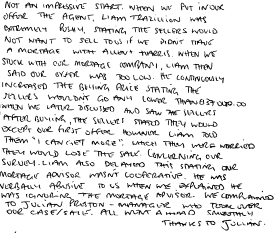 NOT AN IMPRESSIVE START. WHEN WE PUT IN OUR
OFFER THE AGENT, LIAM TRAZILLION WAS
EXTREMELY PUSHY, STATING THE SELLERS WOULD
NOT WANT TO SELL TO US IF WE DIDNT HAVE
A MORTAGE WITH ALLEN HARRIS. WHEN WE
STUCK WITH OUR MORTAGE COMPANY, LIAM THEN
SAID OUR OFFER WAS TOO LOW. HE CONTINUOUSLY
INCREASED THE BUYING PRICE STATING THE
SELLERS WOULDN'T GO ANY LOWER THAN
WHEN WE LATER DISCUSSED AND SAW THE SELLERS
AFTER BUYING, THE SELLERS STATED THEY WOULD
EXCEPT OUR FIRST OFFER HOWEVER LIAM TOLD
THEM "I CAN GET MORE" WHICH THEY WERE WORRIED
THEY WOULD LOSE THE SALE. CONCERNING OUR
SURVEY. LIAM ALSO DELAYED THIS STATING OUR
MORTAGE ADVISOR WASN'T COOPERATIVE. HE WAS
VERBALLY ABUSIVE TO US WHEN WE EXPLAINED HE
WAS THE MORTAGE ADVISOR. WE COMPLAINED
TO JULIAN PRESTON - MANAGER WHO TOOK OVER
OUR CASE/SALE. ALL WENT AHEAD SMOOTHLY
THANKS TO JULIAN.